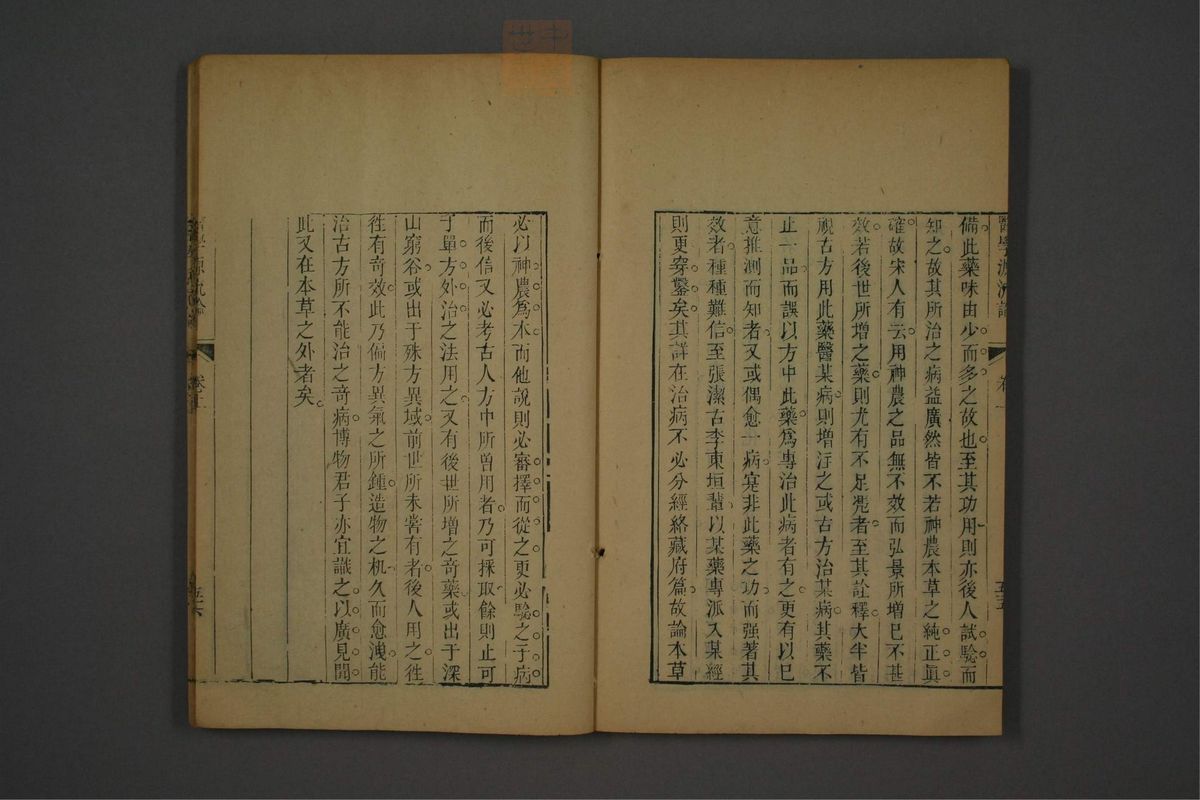 醫學源流論 卷上 五五
備此藥味由少而多之故也至其功用則亦後人試驗而
知之故其所治之病益廣然皆不若神農本草之純正眞
確故宋人有云用神農之品無不效而弘景所增已不甚
效若後世所增之藥則尤有不足凴者至其詮釋大半皆
視古方用此藥醫某病則增注之或古方治某病其藥不
止一品而誤以方中此藥爲專治此病者有之更有以己
意推測而知者又或偶愈一病寔非此藥之功而强著其
效者種種難信至張潔古李東垣輩以某藥專派入某經
則更穿鑿矣其詳在治病不必分經絡藏府篇故論本草
必以神農爲本而他說則必審擇而從之更必驗之于病
而後信又必考古人方中所曾用者乃可採取餘則止可
于單方外治之法用之又有後世所增之奇藥或出于深
山窮谷或出于殊方異域前世所未嘗有者後人用之徃
徃有奇效此乃偏方異氣之所鍾造物之机久而愈洩能
治古方所不能治之奇病博物君子亦宜識之以廣見聞
此又在本草之外者矣
卷上 五六